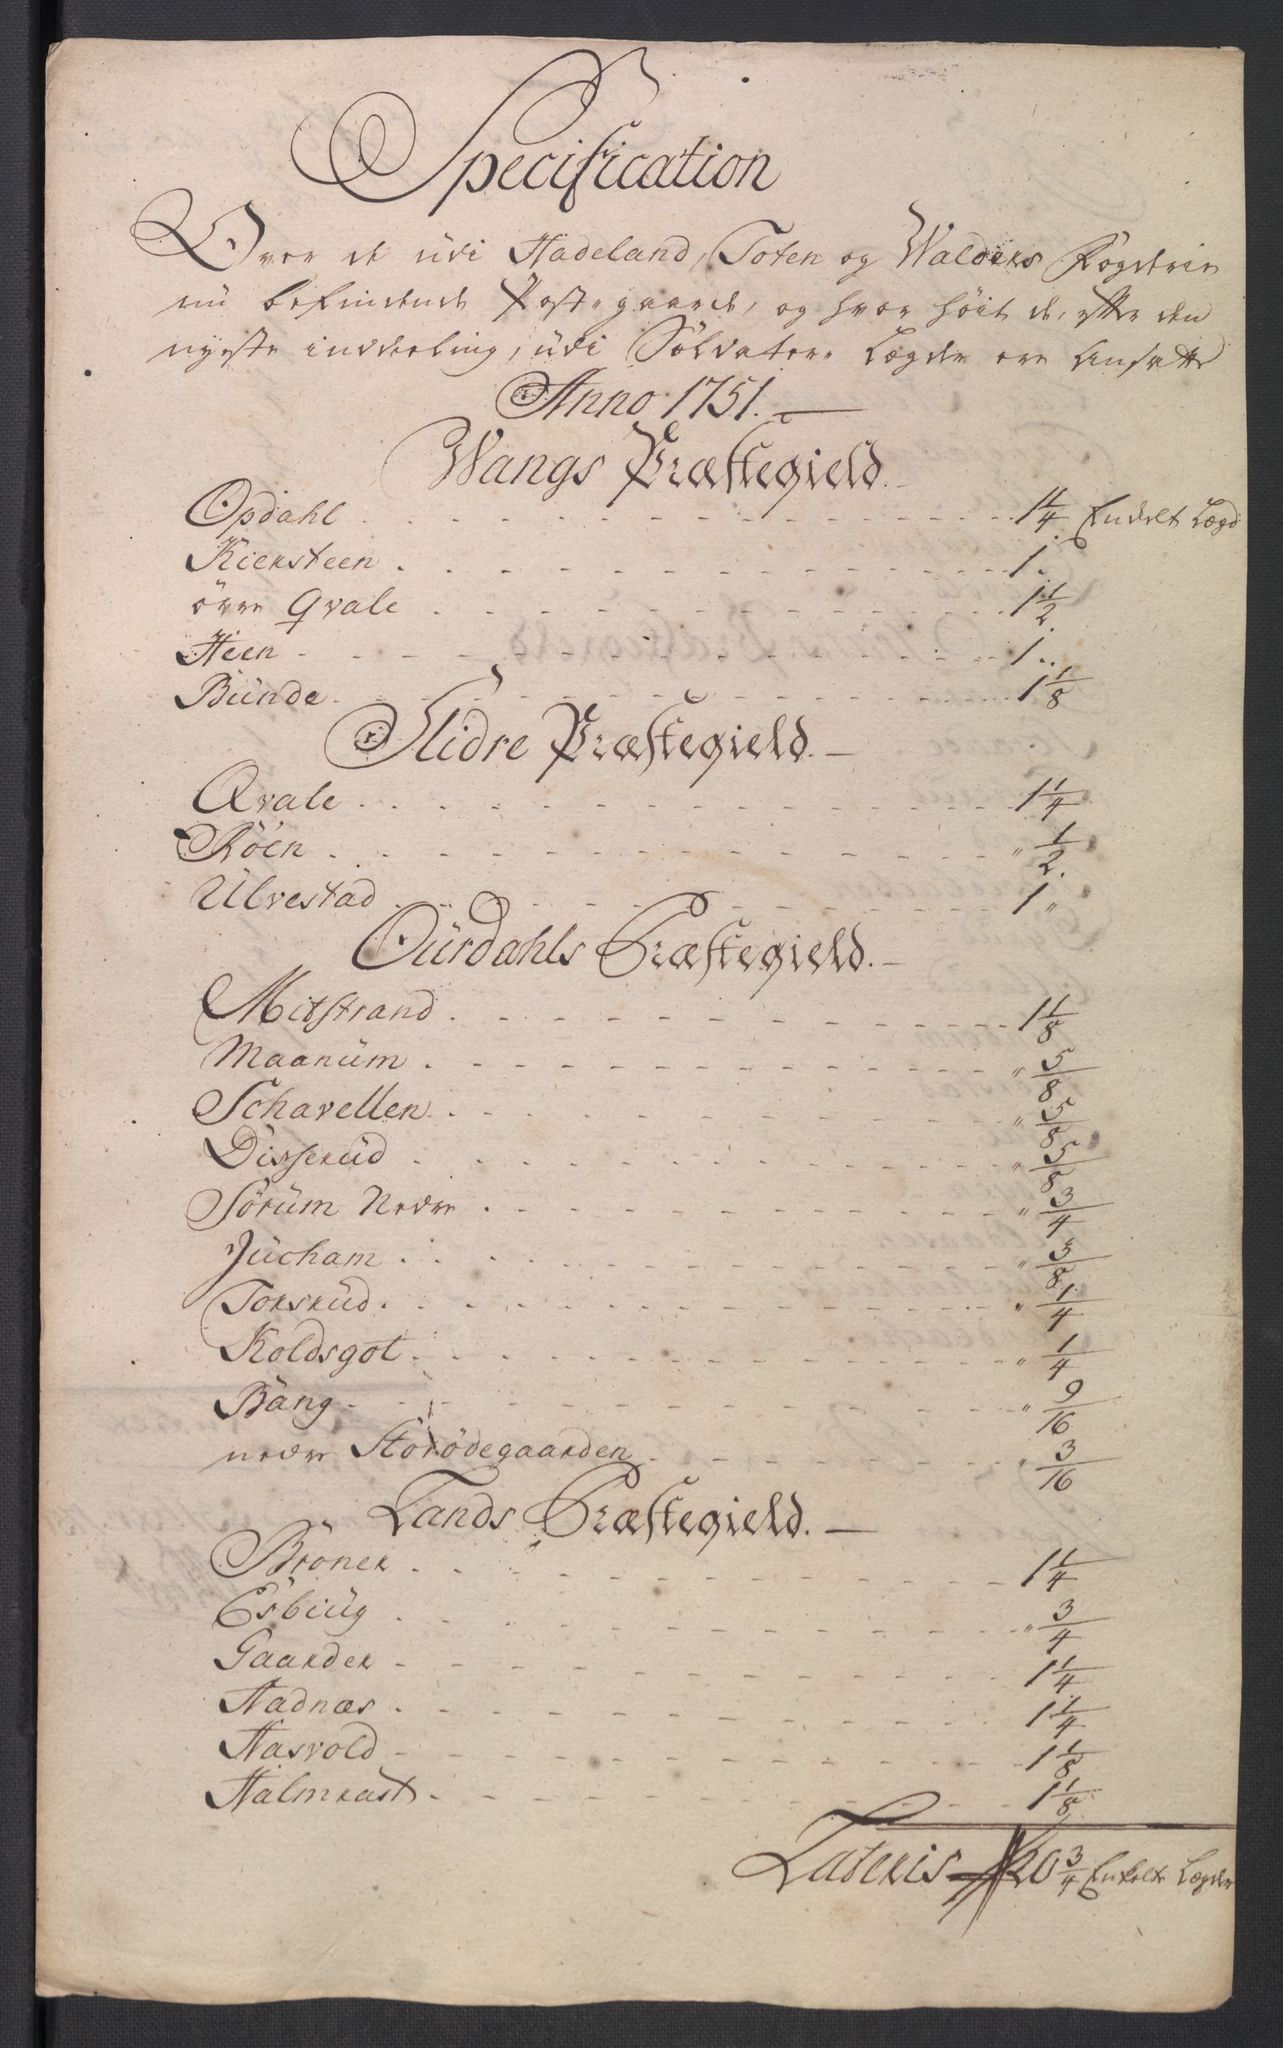 Specification
Over de udi Hadeland, Toten og Walders Fogderie
nu befindende Post-gaarde, og hvor höit de, efter den
nyeste inddeling, udi Soldater- Lægder ere ansatte
Anno 1751.
Wangs Præstegield.
Opdahl . . . 1 1/4 Enckelt Lægd
Kiersteen . . . 1 ..
övre Qvale . . . 1 1/2.
Heen . . . 1 ..
Bunde . . . 1 1/8
Slidre Præstegield.
Qvale . . . 1 1/4
Röen . . . " 1/2.
Ulvestad . . . 1 "
Ourdahls Præstegield.
Mitstrand . . . 1 1/8
Maanüm . . . " 5/8
Schavellen . . . " 5/8
Disserüd . . . " 5/8
Sörüm Nedre . . . " 3/4
Jücham . . . " 3/8
Torsrüd . . . " 1/4
Koldsgot . . . " 1/4
Bang . . . " 9/16
nedre Storödegaarden . . . " 3/16
Lands Præstegield.
Bröner . . . 1 1/4
Esbiüg . . . " 3/4
Gaarder . . . 1 1/4
Hadnæs . . . 1 1/4
Hasvold . . . 1 1/8
Halmrast . . . 1 1/8
Lateris 20 3/4 Enkelte Lægder